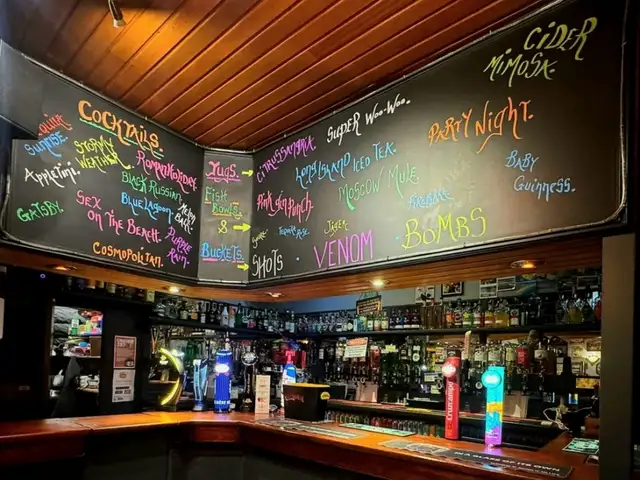 COCKTAILS.
QUIK
SUNRISE.
APPLETINI.
GATSBY.
STORMY
WEATHER.
PORNSTAR
BLACK RUSSIAN.
BLUE LAGOON.
SEX
ON THE BEACH.
PURPLE
RAIN.
COSMOPOLITAN.
JUGS.
FISH
BOWLS.
&
BUCKETS.
CITRUSSANGRIA.
SUPER WOO-WOO.
LONG ISLAND ICED TEA.
MOSCOW/MULE
PINK GIN PUNCH.
JÄGER.
SHOTS.
VENOM
BOMBS
PARTY NIGHT.
CIDER
MIMOSA.
BABY
GUINNESS.
CRUZCAMPO